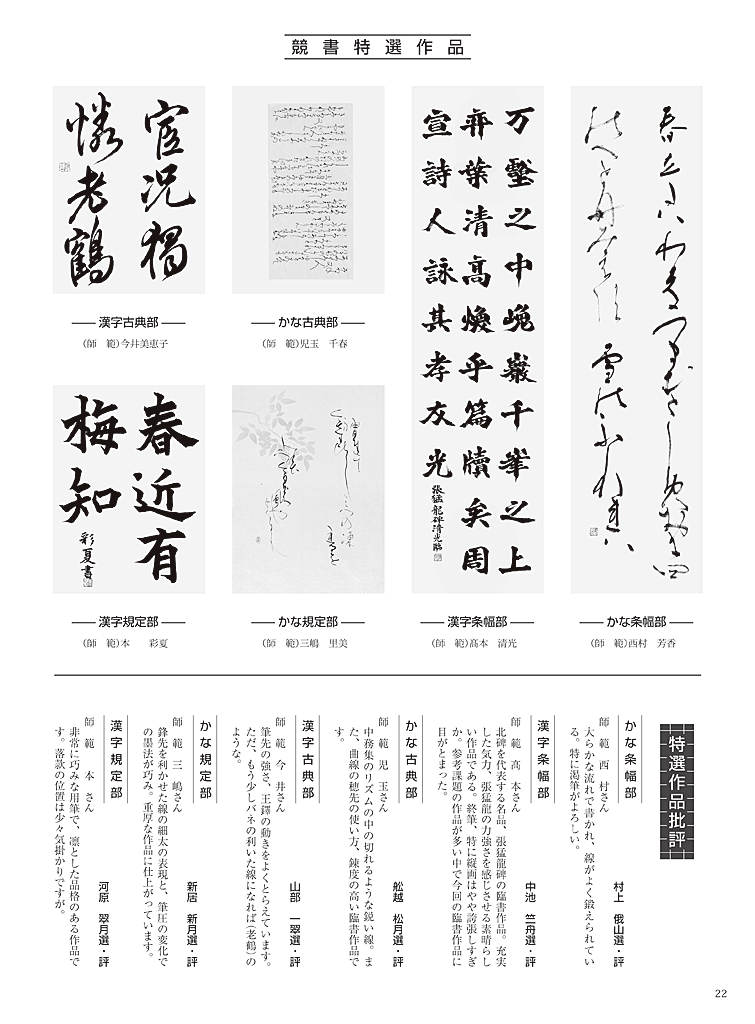 競書特選作品
宦況独
憐老鶴
漢字古典部
（師　範）今井美恵子
かな古典部
（師　範）児玉　千春
万壑之中巉巌千峯之上
弈葉清高煥乎篇牘矣周
宣詩人詠其孝友光
張猛龍碑清光臨
漢字条幅部
（師　範）髙本　清光
かな条幅部
（師　範）西村　芳香
春近有
梅知
彩夏書
漢字規定部
（師　範）本　　彩夏
かな規定部
（師　範）三嶋　里美
特選作品批評
かな条幅部
村上　俄山選・評
師　範　西　村さん
大らかな流れで書かれ、線がよく鍛えられてい
る。特に渇筆がよろしい。
漢字条幅部
中池　竺舟選・評
師　範　髙　本さん
北碑を代表する名品、張猛龍碑の臨書作品。充実
した気力、張猛龍の力強さを感じさせる素晴らし
い作品である。終筆、特に縦画はやや誇張しすぎ
か。参考課題の作品が多い中で今回の臨書作品に
目がとまった。
かな古典部
舩越　松月選・評
師　範　児　玉さん
中務集のリズムの中の切れるような鋭い線。ま
た、曲線の穂先の使い方、錬度の高い臨書作品で
す。
漢字古典部
山部　一翠選・評
師　範　今　井さん
筆先の強さ、王鐸の動きをよくとらえています。
ただ、もう少しバネの利いた線になれば（老鶴）の
ような。
かな規定部
新居　新月選・評
師　範　三　嶋さん
鋒先を利かせた線の細太の表現と、筆圧の変化で
の墨法が巧み。重厚な作品に仕上がっています。
漢字規定部
河原　翠月選・評
師　範　本　さん
非常に巧みな用筆で、凛とした品格のある作品で
す。落款の位置は少々気掛かりですが。
22